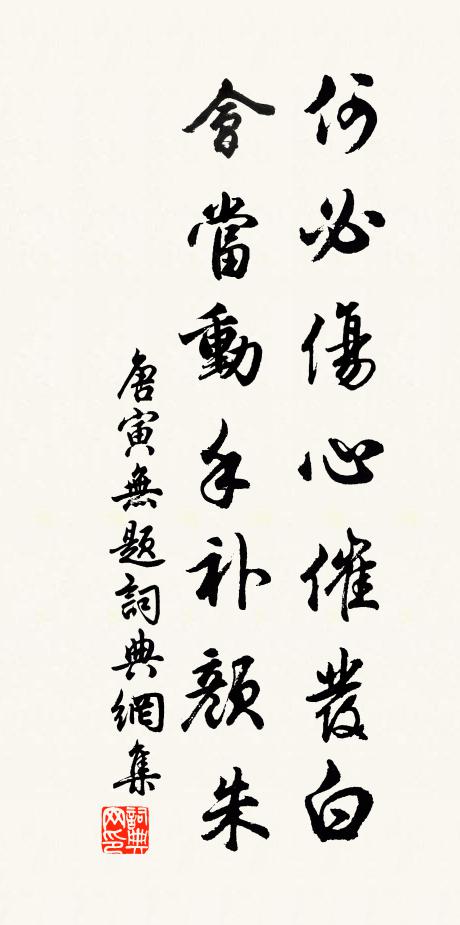 何必傷心催發白
會當動手补顔朱
唐寅無题詞典網集
詞典网印